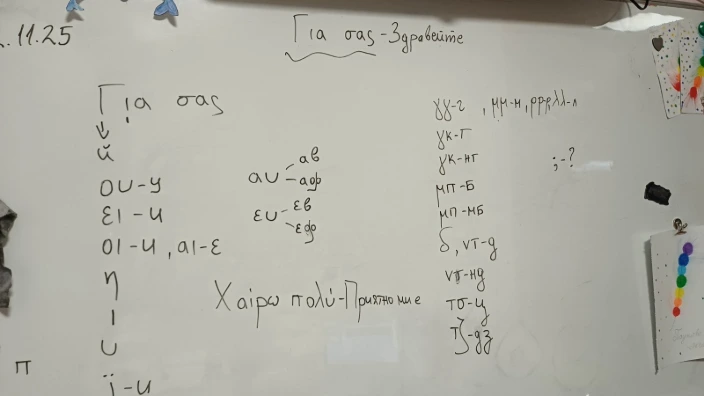 .11.25
Για σας-Здравейте
Για σας
й
ου-у
ει-и
οι-и, αι-ε
η
ι
υ
ϊ-и
π
αυ
αв
αφ
ευ
εв
εφ
Χαίρω πολύ-Приятно ми е
γγ-г, μμ-м, ρρ-р, λλ-л
γκ-г
γκ-нг
;-?
μπ-Б
μπ-мБ
δ, ντ-д
ντ-нд
τσ-ц
τζ-дз